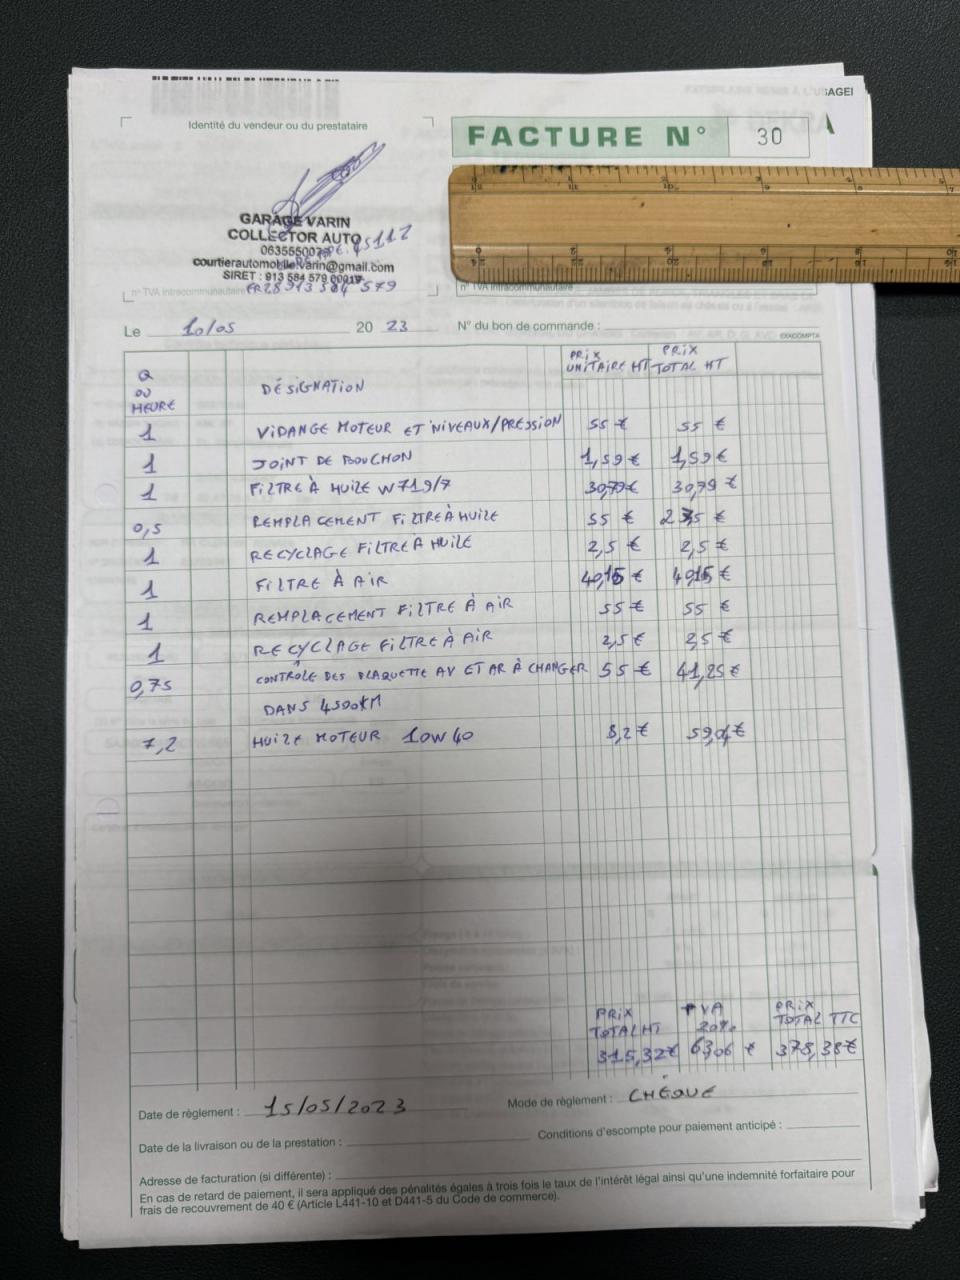 SAGEI
Identité du vendeur ou du prestataire
FACTURE N° 30
GARAGE VARIN
COLLECTOR AUTO
courtierautomobile.varin@gmail.com
SIRET : 913 584 579
n° TVA intracommunautaire FR28 913 584 579
n° TVA intracommunautaire
Le 10/05 20 23 N° du bon de commande :
EXACOMPTA
Q OU HEURE DÉSIGNATION PRIX UNITAIRE HT PRIX TOTAL HT
1 VIDANGE MOTEUR ET NIVEAUX/PRESSION 55 € 55 €
1 JOINT DE BOUCHON 1,59 € 1,59 €
1 FILTRE À HUILE W719/7 30,79 € 30,79 €
0,5 REMPLACEMENT FILTRE À HUILE 55 €
1 RECYCLAGE FILTRE À HUILE 2,5 € 2,5 €
1 FILTRE À AIR 40,15 € 40,15 €
1 REMPLACEMENT FILTRE À AIR 55 € 55 €
1 RECYCLAGE FILTRE À AIR 2,5 € 2,5 €
0,75 CONTRÔLE DES PLAQUETTE AV ET AR À CHANGER 55 € 41,25 €
DANS 4500KM
7,2 HUILE MOTEUR 10W40 8,2 € 59,04 €
PRIX TOTAL HT TVA 20% PRIX TOTAL TTC
315,32 € 63,06 € 378,38 €
Date de règlement : 15/05/2023 Mode de règlement : CHÈQUE
Date de la livraison ou de la prestation : Conditions d'escompte pour paiement anticipé :
Adresse de facturation (si différente) :
En cas de retard de paiement, il sera appliqué des pénalités égales à trois fois le taux de l'intérêt légal ainsi qu'une indemnité forfaitaire pour
frais de recouvrement de 40 € (Article L441-10 et D441-5 du Code de commerce).